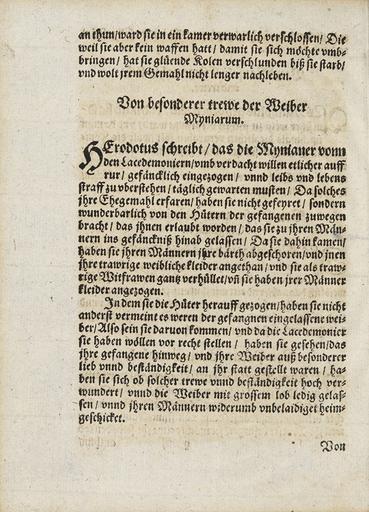 an thun/ward sie in ein kamer verwarlich verschlossen/ Die
weil sie aber kein waffen hatt/ damit sie sich möchte vmb-
bringen/ hat sie glüende Kolen verschlunden biß sie starb/
vnd wolt jrem Gemahl nicht lenger nachleben.
Von besonderer trewe der Weiber
Myniarum.
HErodotus schreibt/ das die Mynianer vonn
den Lacedemoniern/vmb verdacht willen etlicher auff
rur/ gefäncklich eingezogen/ vnnd leibs vnd lebens
straff zu vberstehen/ täglich gewarten musten/ Da solches
jhre Ehegemahl erfaren/ haben sie nicht gefeyret/ sondern
wunderbarlich von den Hütern der gefangenen zuwegen
bracht/ das jhnen erlaubt worden/ das sie zu jhren Män-
nern ins gefänckniß hinab gelassen/ Da sie dahin kamen/
haben sie jhren Männern jhre bärth abgeschoren/vnd jnen
jhre trawrige weibliche kleider angethan/ vnd sie als traw-
rige Witfrawen gantz verhüllet/vñ sie haben jrer Männer
kleider angezogen.
In dem sie die Hüter herauff gezogen/haben sie nicht
anderst vermeint es weren der gefangnen eingelassene wei-
ber/Also sein sie daruon kommen/ vnd da die Lacedemonier
sie haben wöllen vor recht stellen/ haben sie gesehen/das
jhre gefangene hinweg/ vnd jhre Weiber auß besonderer
lieb vnnd beständigkeit/ an jhr statt gestellt waren/ ha-
ben sie sich ob solcher trewe vnnd beständigkeit hoch ver-
wundert/ vnnd die Weiber mit grossem lob ledig gelas-
sen/ vnnd jhren Männern widerumb vnbelaidiget heim-
geschicket.
Von